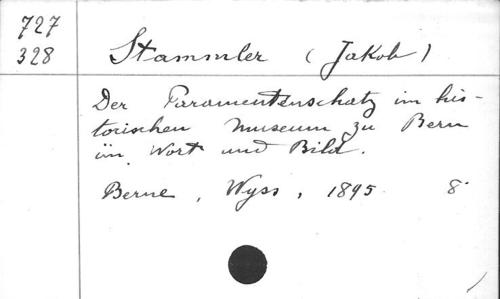 727
328
Stammler (Jakob)
Der Paramentenschatz im his-
torischen Museum zu Bern
in Wort und Bild.
Berne, Wyss, 1895. 8°